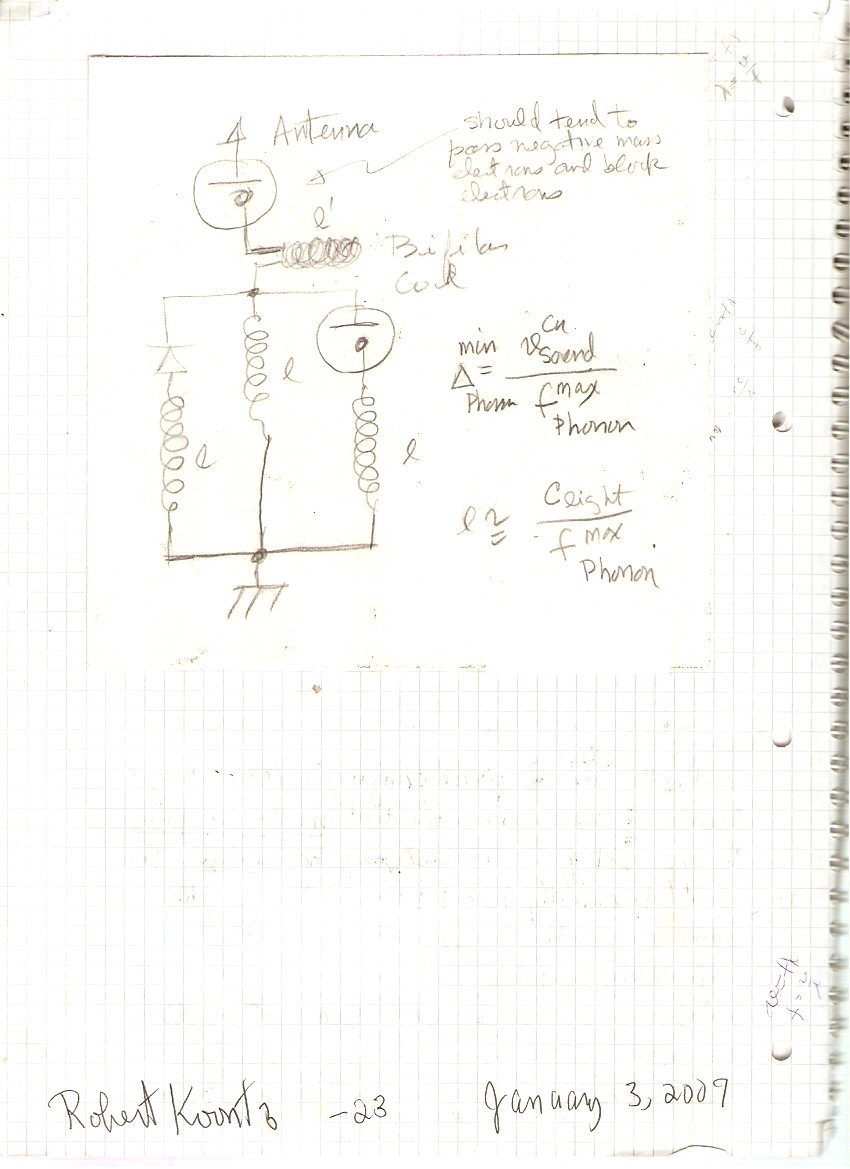 Antenna
should tend to
pass negative mass
electrons and block
electrons
l'
Bifilar
Coil
l
l
l
min
Δ =
Phonon
Cu
v sound
f max
Phonon
l ≅
C light
f max
Phonon
λ = v/f
Robert Koontz
-23
January 3, 2009